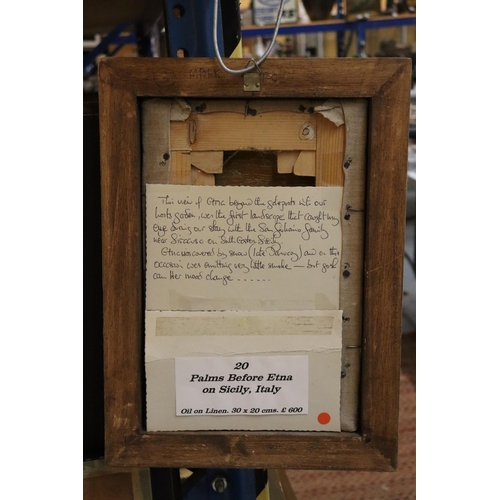 This view of Etna beyond the gateposts into our
hosts garden, was the first landscape that caught my
eye during our stay with the San Giuliano family
near Siracusa on South Eastern Sicily
Etna was covered by snow (late January) and on this
occasion was emitting very little smoke – but gosh
can her mood change . . . . . . .
20
Palms Before Etna
on Sicily, Italy
Oil on Linen. 30 x 20 cms. £ 600